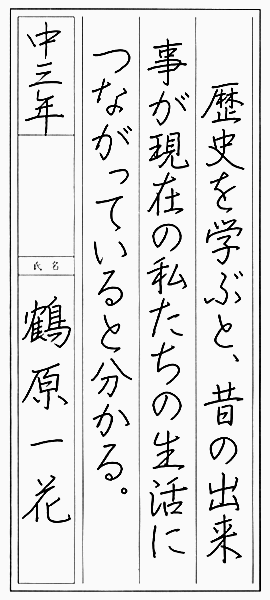 歴史を学ぶと、昔の出来
事が現在の私たちの生活に
つながっていると分かる。
中三年
氏名
鶴原一花